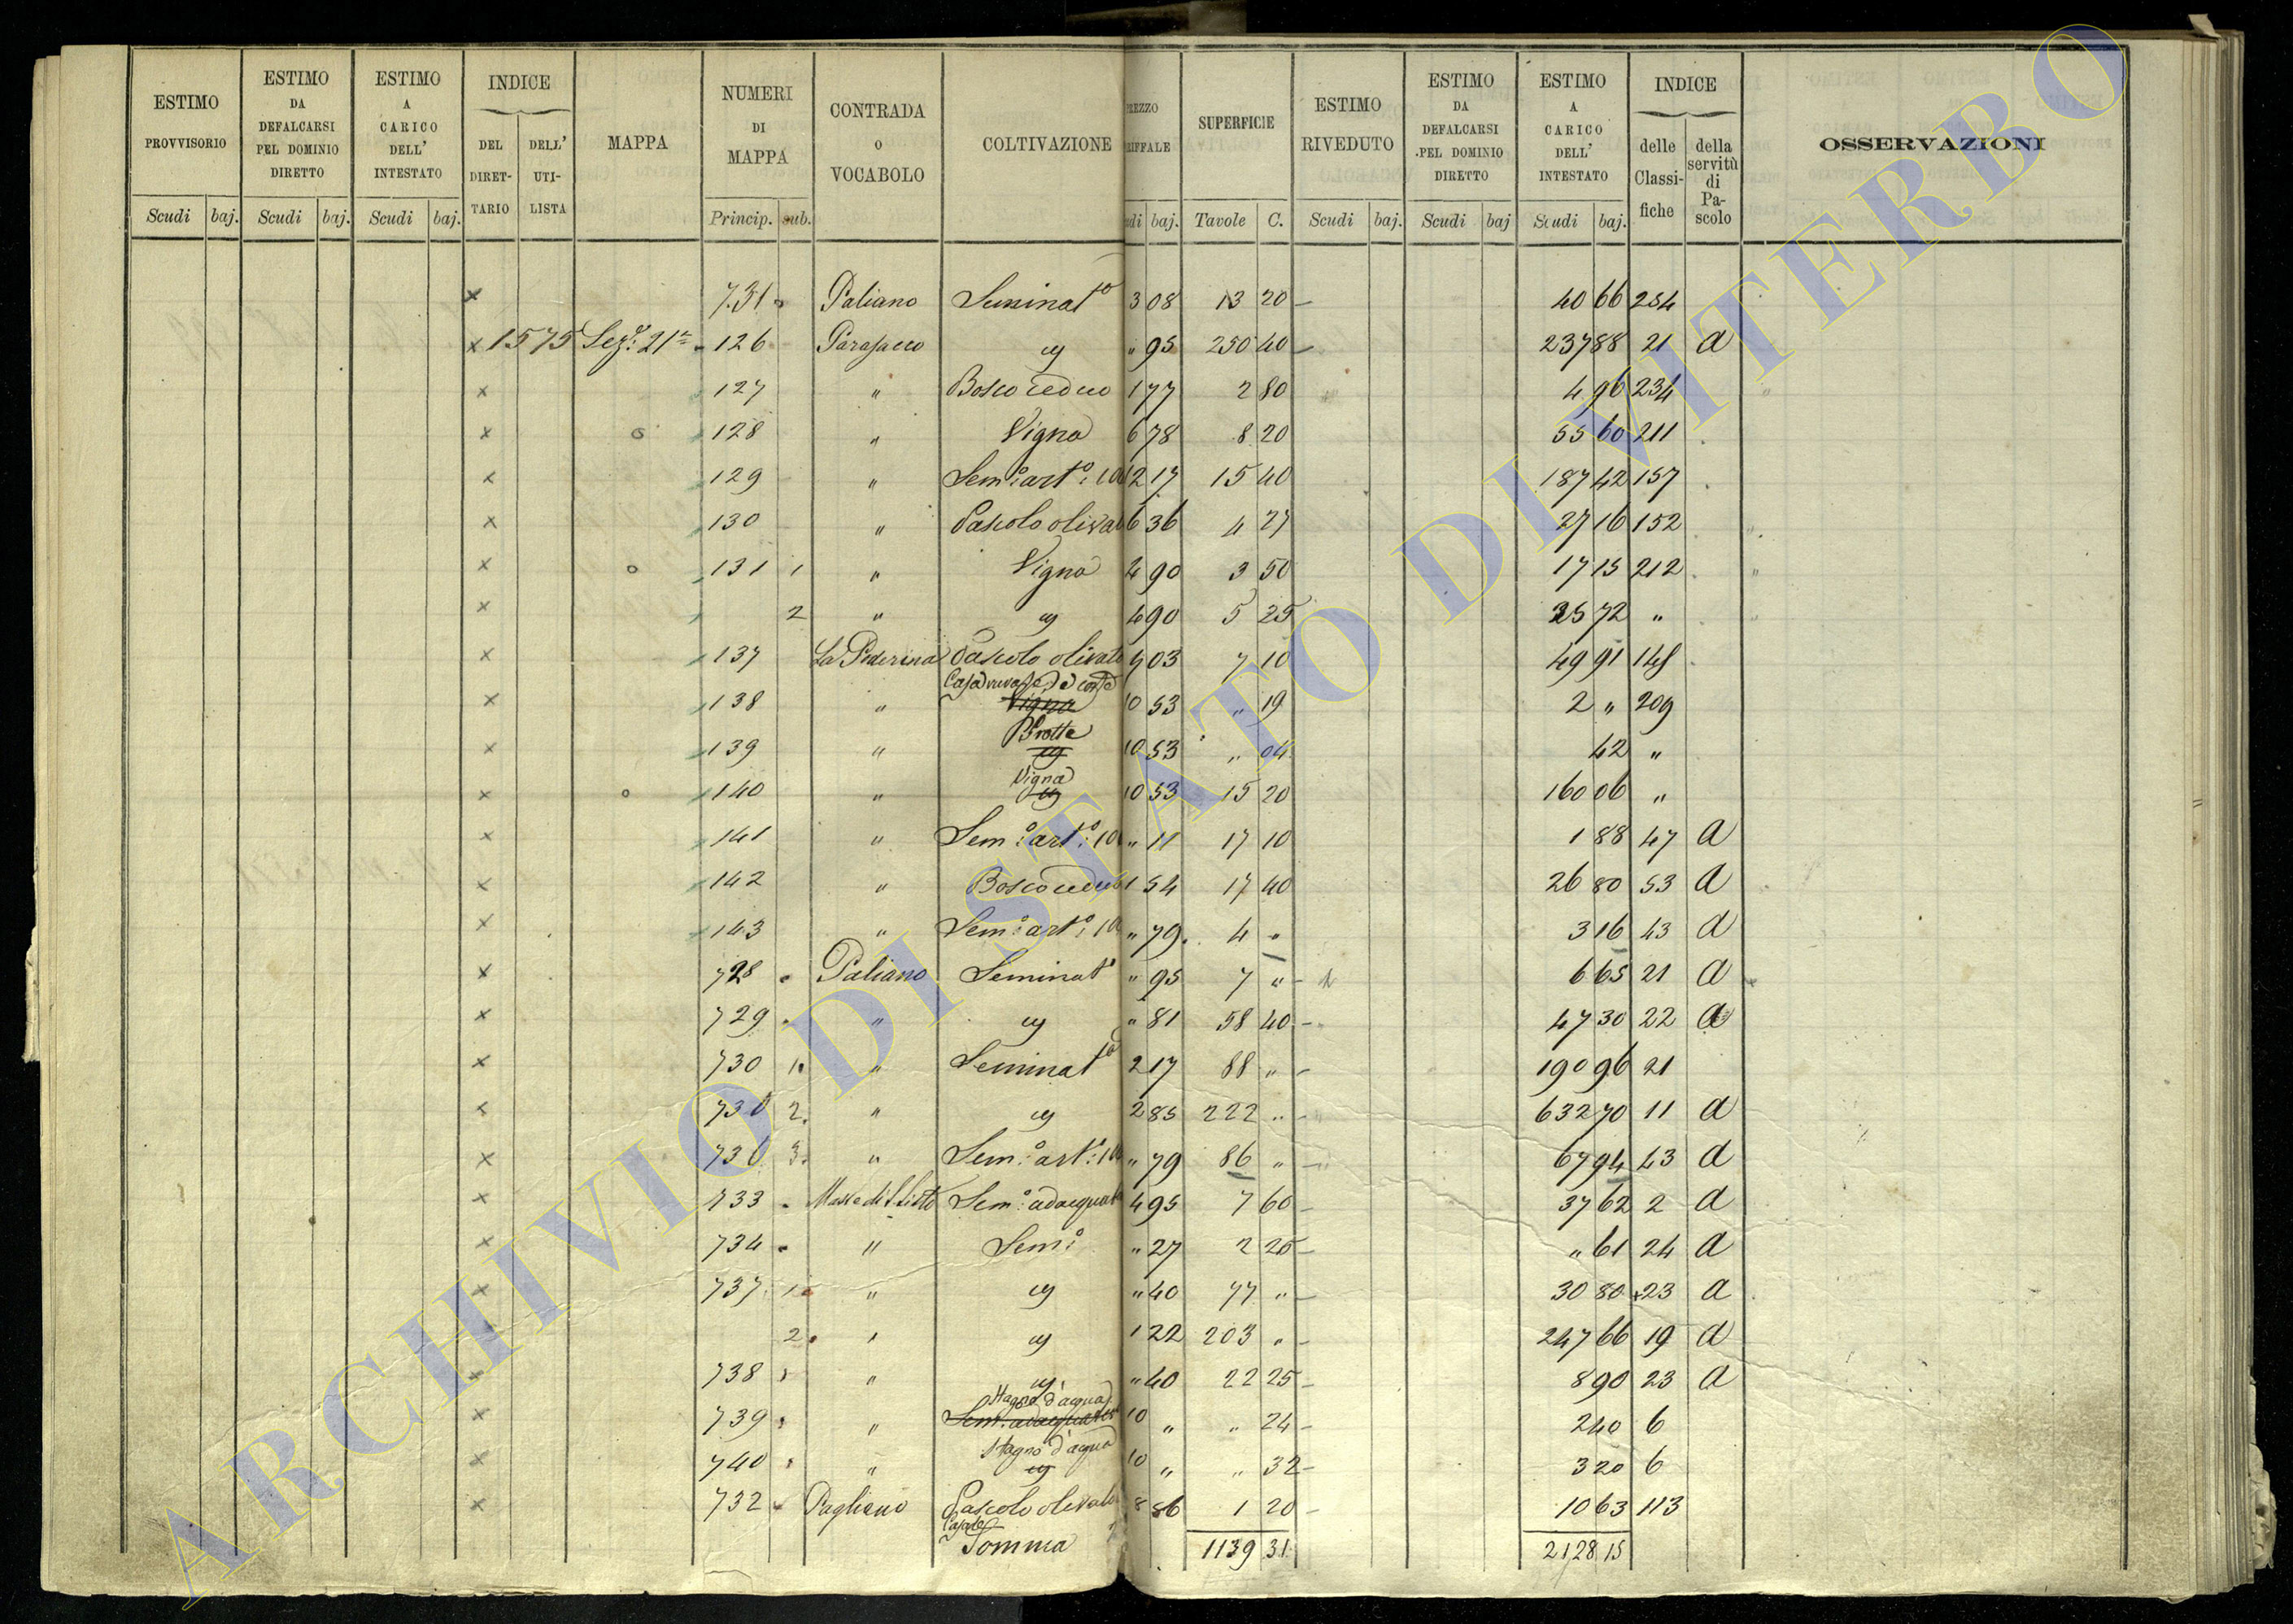 ESTIMO PROVVISORIO | ESTIMO DA DEFALCARSI PEL DOMINIO DIRETTO | ESTIMO A CARICO DELL' INTESTATO | INDICE DEL DIRETTARIO | DELL' UTILISTA | MAPPA | NUMERI DI MAPPA | CONTRADA O VOCABOLO | COLTIVAZIONE | REZZO RIFFALE | SUPERFICIE | ESTIMO RIVEDUTO | ESTIMO DA DEFALCARSI PEL DOMINIO DIRETTO | ESTIMO A CARICO DELL' INTESTATO | INDICE delle Classifiche | della servitù di Pascolo | OSSERVAZIONI
Scudi baj. Scudi baj. Scudi baj. Princip. sub. udi baj. Tavole C. Scudi baj. Scudi baj Scudi baj.
× 731 Paliano Seminat° 3 08 13 20 40 66 254
× 1575 Sez. 21ª 126 Parasacco " 95 250 40 237 88 21 a
× 127 " Bosco ceduo 1 77 2 80 4 96 234
× 128 " Vigna 6 78 8 20 55 60 211
× 129 " Sem°: art°: 100 12 17 15 40 187 42 157
× 130 " Pascolo olivat 6 36 4 27 27 16 152
× 131 1 " Vigna 4 90 3 50 17 15 212
× 2 " 4 90 5 25 25 72 "
× 137 La Pederina Pascolo olivato 7 03 7 10 49 91 148
× 138 " Vigna 10 53 " 19 2 " 209
× 139 " Grotte 10 53 " 04 42 "
× 140 " Vigna 10 53 15 20 160 06 "
× 141 " Sem°: art°: 100 " 11 17 10 1 88 47 a
× 142 " Bosco ceduo 1 54 17 40 26 80 53 a
× 143 " Sem°: art°: 100 " 79 4 " 3 16 43 a
× 728 Paliano Seminat° " 95 7 " 6 65 21 a
× 729 " " 81 58 40 47 30 22 a
× 730 1 " Seminat° 2 17 88 " 190 96 21
× 730 2 " 2 85 222 " 632 70 11 a
× 730 3 " Sem°: art°: 100 " 79 86 " 67 94 43 a
× 733 Sem°: adacquat 4 95 7 60 37 62 2 a
× 734 " Sem° " 27 2 25 " 61 24 a
× 737 1 " " 40 77 " 30 80 23 a
2 " 1 22 203 " 247 66 19 a
× 738 " " 40 22 25 8 90 23 a
× 739 " Stagno d'acqua 10 " " 24 2 40 6
× 740 " Stagno d'acqua 10 " " 32 3 20 6
× 732 Pagliano Pascolo olivato 8 86 1 20 10 63 113
Somma 1139 31 2128 15
ARCHIVIO DI STATO DI VITERBO